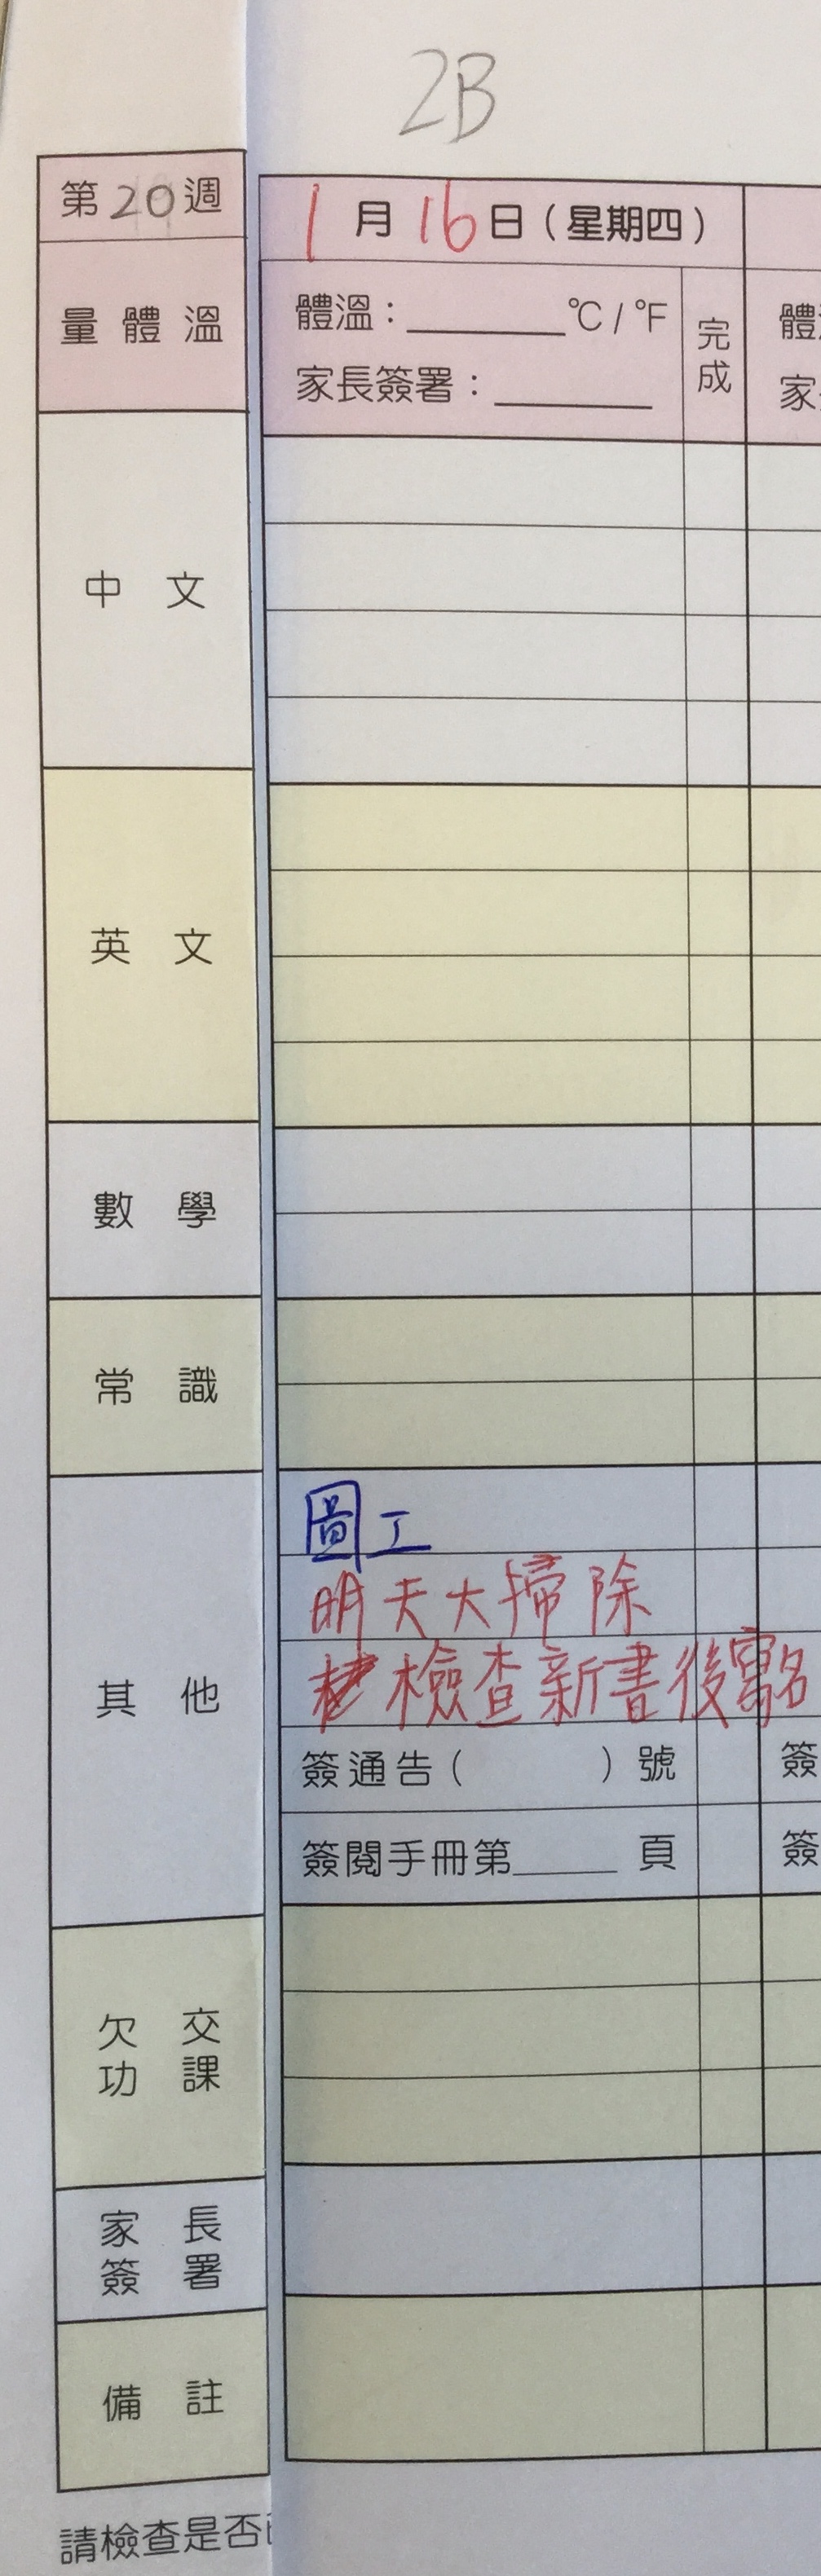 2B
第20週
1月16日(星期四)
量體溫
體溫：______°C/°F
完成
家長簽署：______
家
中文
英文
數學
常識
其他
圖工
明天大掃除
檢查新書後寫名
簽通告( )號
簽
簽閱手冊第____頁
簽
欠交功課
家長簽署
備註
請檢查是否